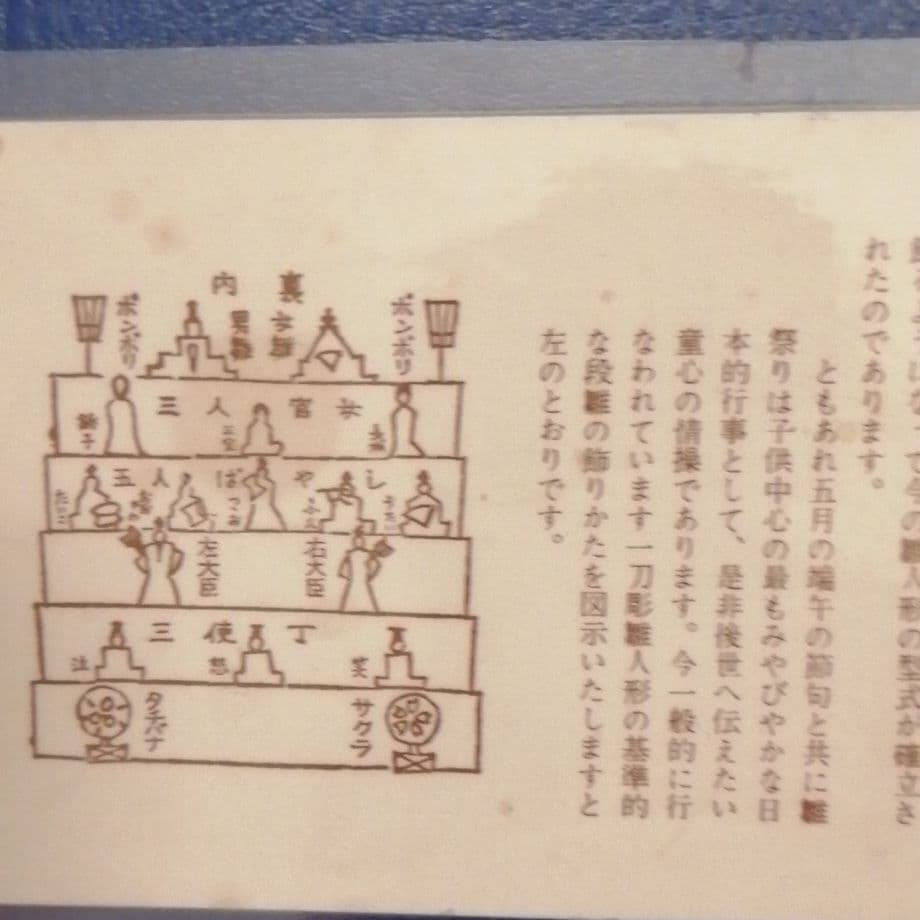 の雛人形の型式が確立さ
れたのであります。
ともあれ五月の端午の節句と共に雛
祭りは子供中心の最もみやびやかな日
本的行事として、是非後世へ伝えたい
童心の情操であります。今一般的に行
なわれています一刀彫雛人形の基準的
な段雛の飾りかたを図示いたしますと
左のとおりです。
内裏
ボンボリ
男雛
女雛
ボンボリ
三人官女
銚子
三宝
五人ばやし
たいこ
左大臣
右大臣
三使丁
泣
怒
笑
タチバナ
サクラ